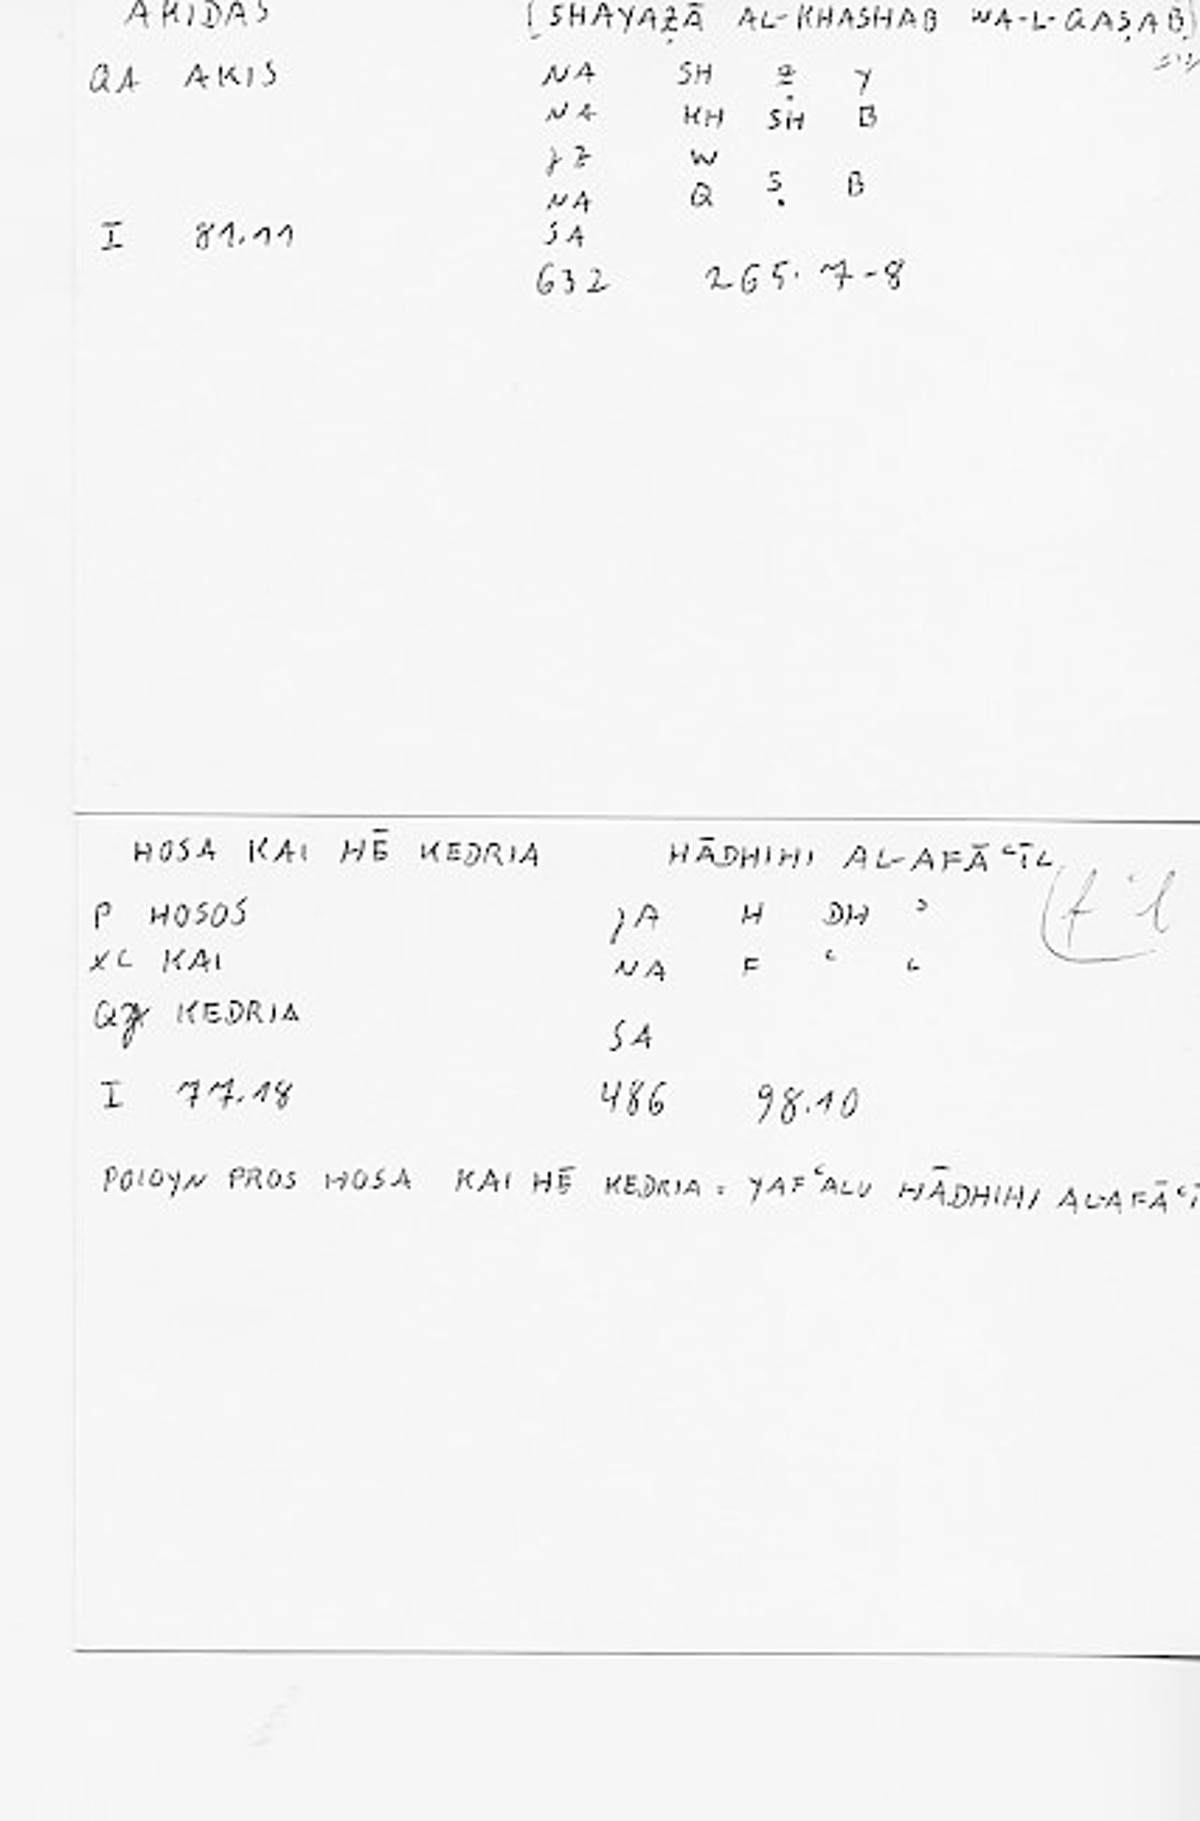 AKIDAS [SHAYAẒĀ AL-KHASHAB WA-L-QAṢAB]
QA AKIS NA SH Ẓ Y
NA KH SH B
JZ W
NA Q Ṣ B
I 81.11 SA
632 265.7-8
HOSA KAI HĒ KEDRIA HĀDHIHI AL-AFĀʿĪL
P HOSOS JA H DH ʾ (fʿl
XL KAI NA F ʿ L
KEDRIA
SA
I 77.18 486 98.10
POIOYN PROS HOSA KAI HĒ KEDRIA : YAFʿALU HĀDHIHI AL-AFĀʿĪ